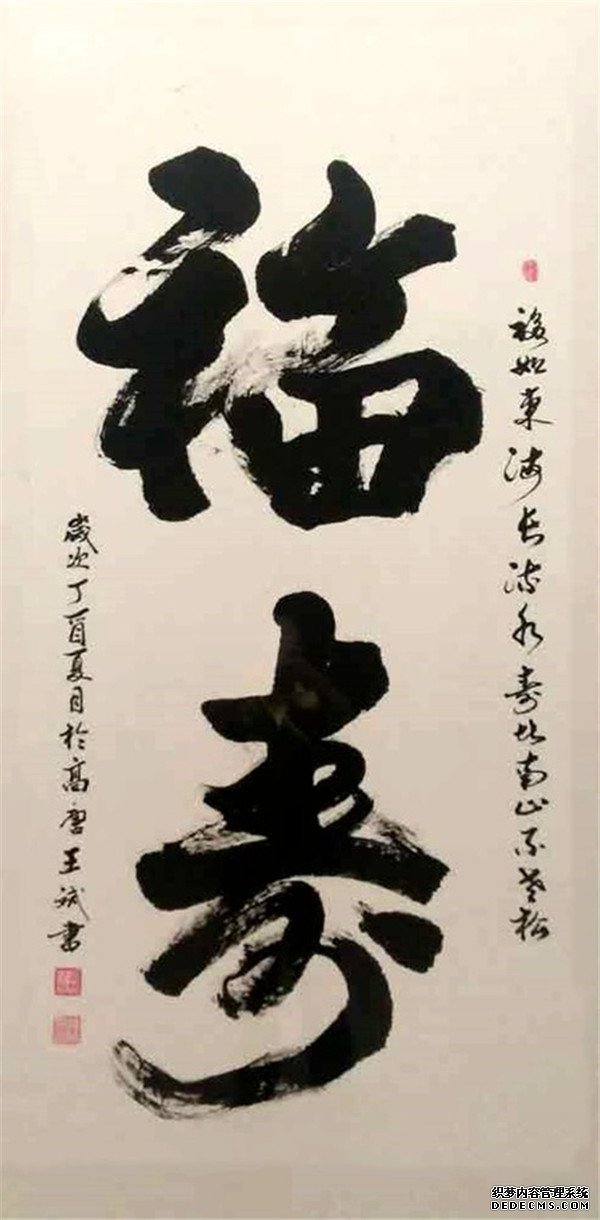 福如东海长流水寿比南山不老松
福寿
岁次丁酉夏月於高唐王斌书
织梦内容管理系统
DEDECMS.COM